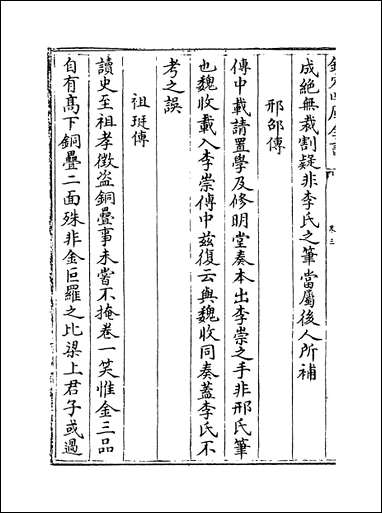 成絶無裁割疑非李氏之筆當屬後人所補
邢邵傳
傳中載請置學及修明堂奏本出李崇之手非邢氏筆
也魏收載入李崇傳中兹復云與魏收同奏蓋李氏不
考之誤
祖珽傳
讀史至祖孝徴盜銅疊事未嘗不掩卷一笑惟金三品
自有髙下銅疊二面殊非金叵羅之比梁上君子或過